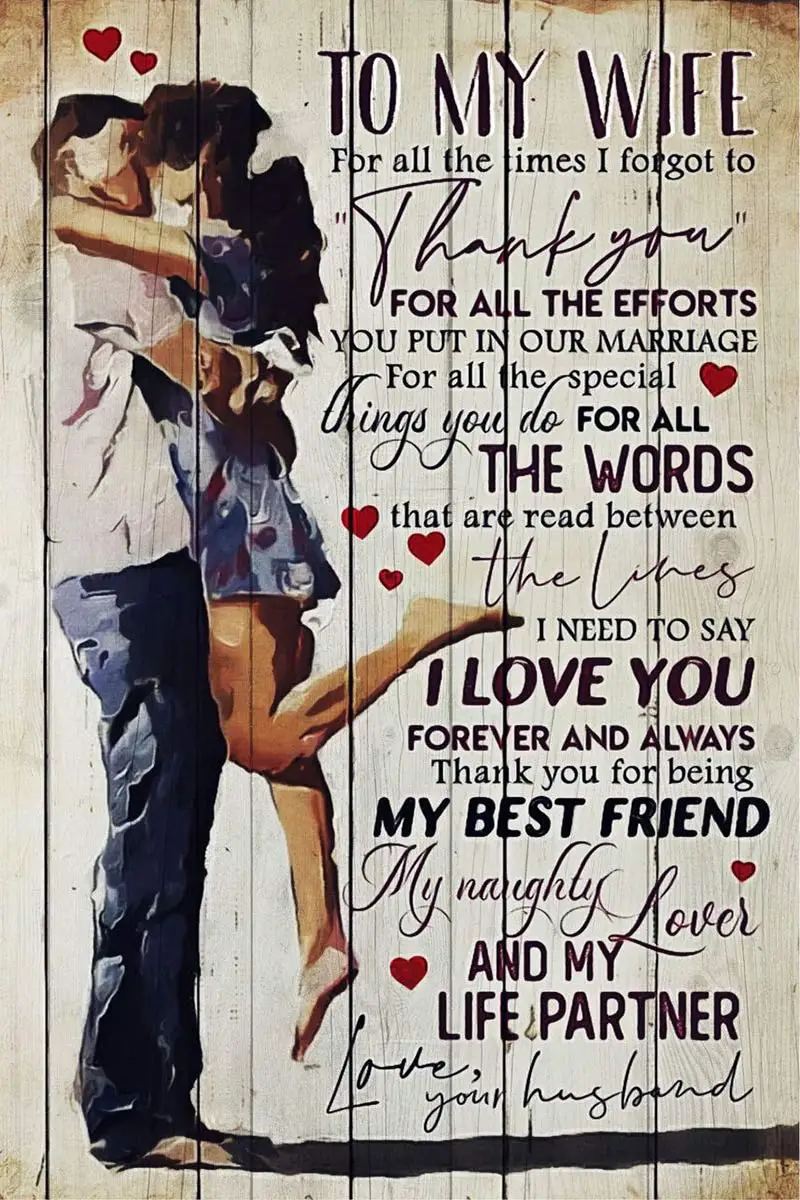 TO MY WIFE
For all the times I forgot to
"Thank you"
FOR ALL THE EFFORTS
YOU PUT IN OUR MARRIAGE
For all the special
things you do FOR ALL
THE WORDS
that are read between
the lines
I NEED TO SAY
I LOVE YOU
FOREVER AND ALWAYS
Thank you for being
MY BEST FRIEND
My naughty Lover
AND MY
LIFE PARTNER
Love,
your husband